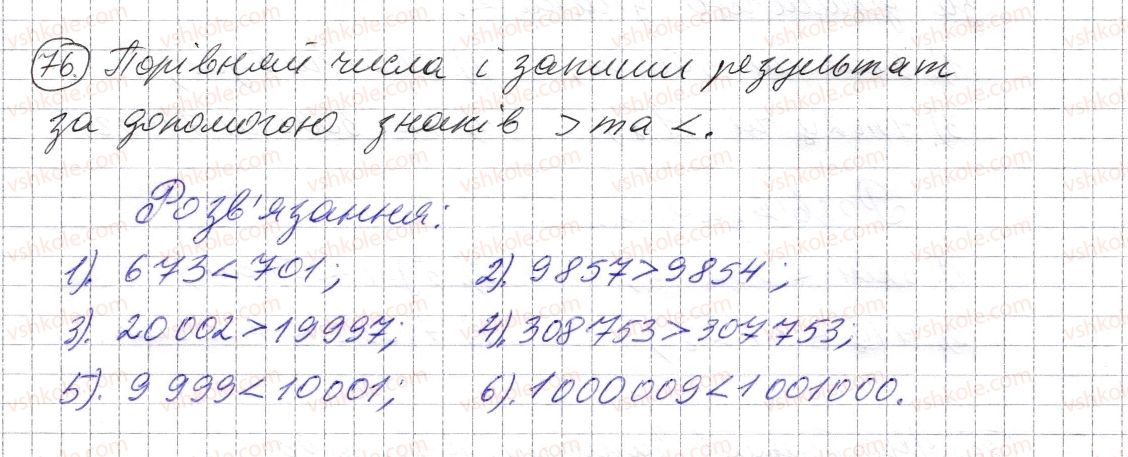 76. Порівняй числа і запиши результат
за допомогою знаків > та <.
Розв'язання:
1). 673 < 701; 2). 9857 > 9854;
3). 20 002 > 19997; 4). 308 753 > 307 753;
5). 9 999 < 10001; 6). 1000 009 < 1 001000.